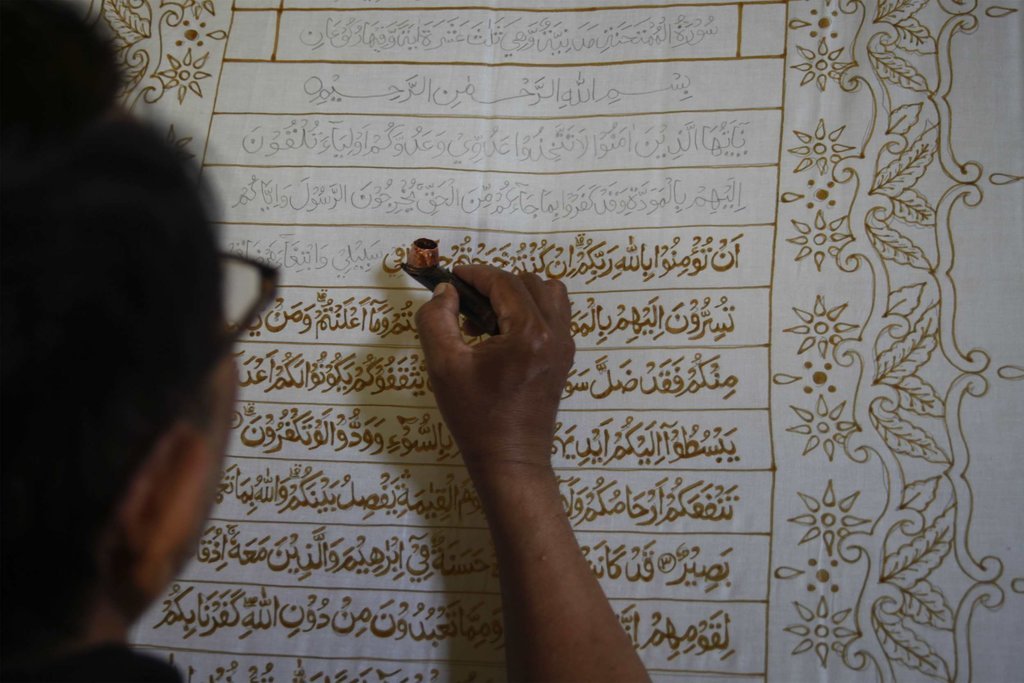 سُوْرَةُ الْمُمْتَحِنَةِ مَدَنِيَّةٌ وَّهِيَ ثَلَاثَ عَشْرَةَ اٰيَةً وَّفِيْهَا رُكُوْعَانِ
بِسْمِ اللّٰهِ الرَّحْمٰنِ الرَّحِيْمِ
يٰٓاَيُّهَا الَّذِيْنَ اٰمَنُوْا لَا تَتَّخِذُوْا عَدُوِّيْ وَعَدُوَّكُمْ اَوْلِيَاۤءَ تُلْقُوْنَ
اِلَيْهِمْ بِالْمَوَدَّةِ وَقَدْ كَفَرُوْا بِمَا جَاۤءَكُمْ مِّنَ الْحَقِّۚ يُخْرِجُوْنَ الرَّسُوْلَ وَاِيَّاكُمْ
اَنْ تُؤْمِنُوْا بِاللّٰهِ رَبِّكُمْۗ اِنْ كُنْتُمْ خَرَجْتُمْ فِيْ سَبِيْلِيْ وَابْتِغَاۤءَ
تُسِرُّوْنَ اِلَيْهِمْ وَمَآ اَعْلَنْتُمْۗ وَمَنْ
مِنْكُمْ فَقَدْ ضَلَّ يَّثْقَفُوْكُمْ يَكُوْنُوْا لَكُمْ
يَبْسُطُوْٓا اِلَيْكُمْ بِالسُّوْۤءِ وَوَدُّوْا لَوْ تَكْفُرُوْنَۗ
تَنْفَعَكُمْ اَرْحَامُكُمْ وَلَآ الْقِيٰمَةِۚ يَفْصِلُ بَيْنَكُمْۗ وَاللّٰهُ بِمَا
بَصِيْرٌ ۝٣ قَدْ حَسَنَةٌ فِيْٓ اِبْرٰهِيْمَ وَالَّذِيْنَ مَعَهٗۚ اِذْ
لِقَوْمِهِمْ وَمِمَّا تَعْبُدُوْنَ مِنْ دُوْنِ اللّٰهِۖ كَفَرْنَا بِكُمْ